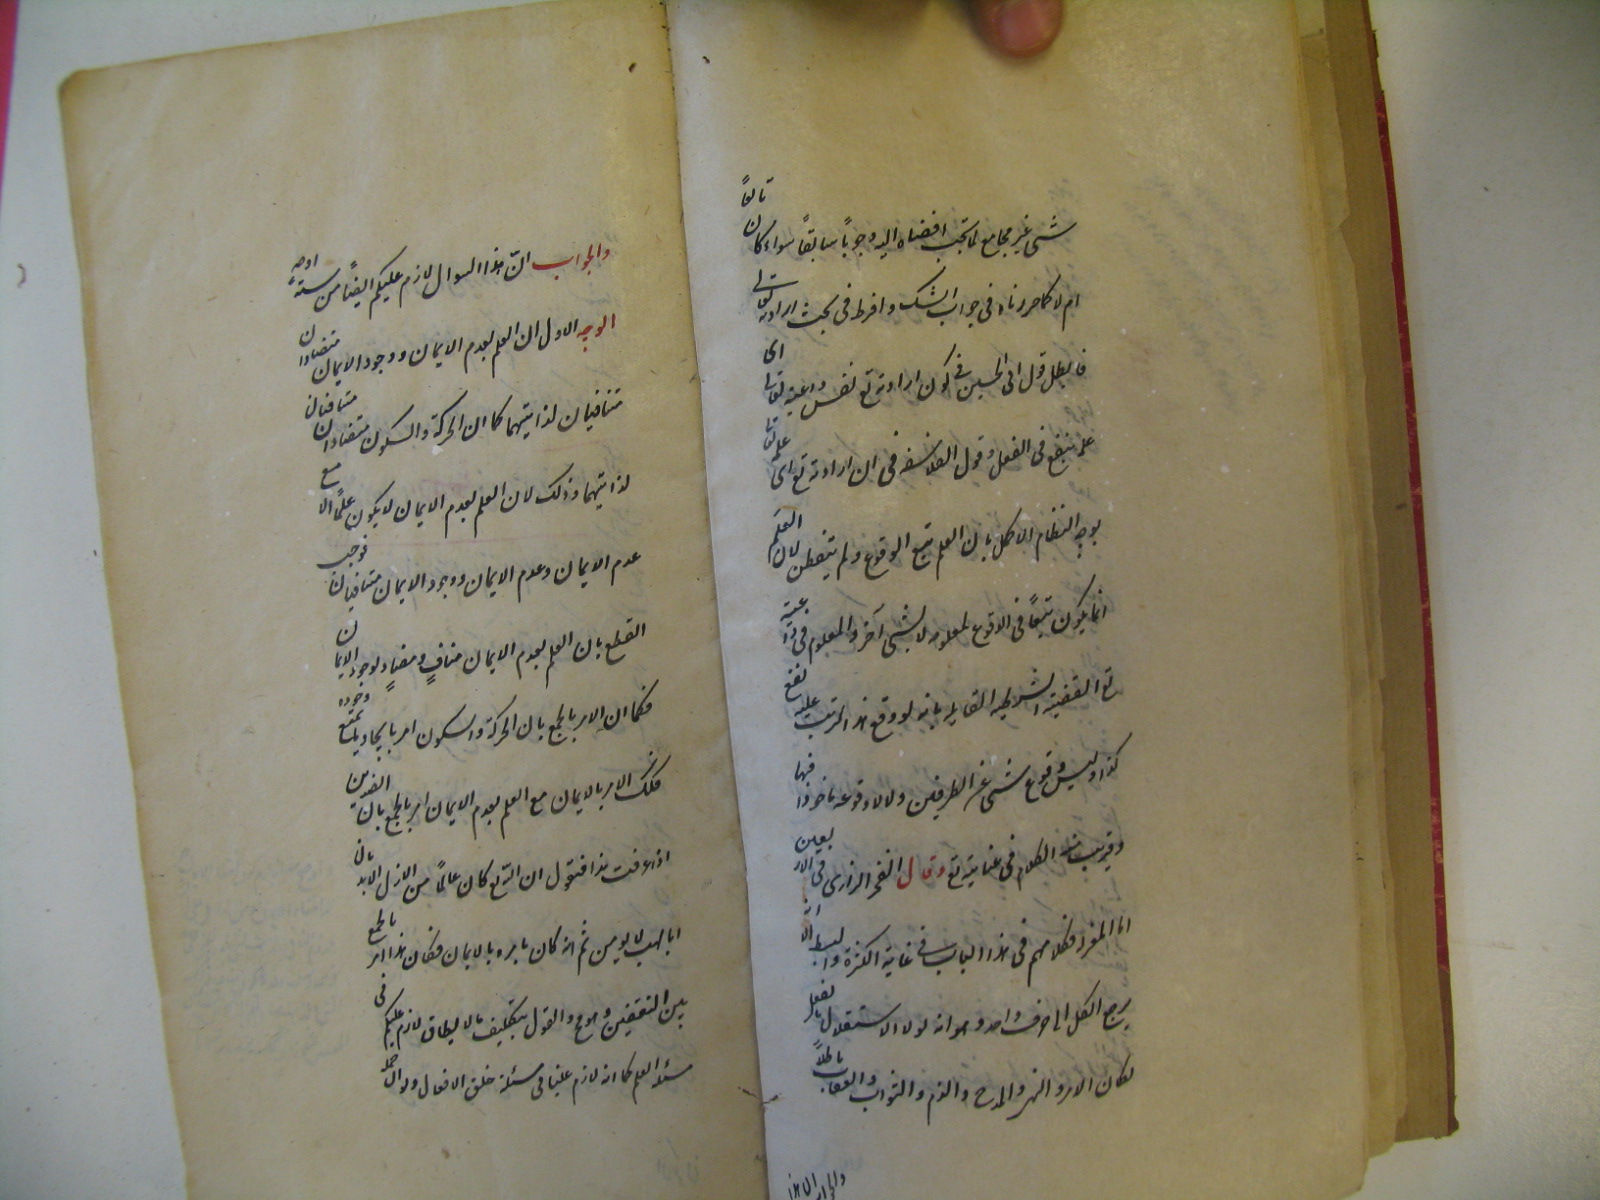 شىء غير مجامع لما تجب افضاه اليه وجوباً سابقاً سواء كان تالفاً
ام لا كما حررناه فى جواب الشك و افرط فى بحث ارادته تعالى
فابطل قول ابى الحسين فى كون ارادته تع نفس داعيته تعالى اى
علمه بنفع فى الفعل و قول الفلاسفه فى ان ارادته تع اى علمه تعالى
بوجه النظام الاكمل بان العلم تبع الوقوع و لم يتفطن لان العلم
انما يكون تبعاً فى الوقوع لمعلومه لا لشىء آخر و المعلوم فى داعيته
تع القضية الشرطيه القايله بانه لو وقع هذا لترتب عليه نفع
كذا و ليس وقوع شىء من الطرفين و لا لا وقوعه ماخوذا فيها
و قريب منه الكلام فى عنايته تع و قال الفخر الرازى فى الاربعين
اما المغزلة فكلامهم فى هذا الباب فى غاية الكثرة و البسط الا انه
يرجع الكل الى حرف واحد و هو انه لو لا الاستقلال بالفعل
لكان الامر و النهى و المدح و الذم و الثواب و العقاب باطلاً
والجواب ان هذا
والجواب انّ هذا السوال لازم عليكم ايضاً من ستة اوجه
الوجه الاول ان العلم بعدم الايمان و وجود الايمان متضادان
متنافيان لذاتيهما كما ان الحركة و السكون متضادان متنافيان
لذاتيهما و ذلك لان العلم بعدم الايمان لا يكون علمًا الا مع
عدم الايمان و عدم الايمان و وجود الايمان متنافيان فوجب
القطع بان العلم بعدم الايمان منافٍ و مضادٍ لوجود الايمان
فكما ان الامر بالجمع بين الحركة و السكون امر بايجاد ما يمتنع وجوده
فكذلك الامر بالايمان مع العلم بعدم الايمان امر بالجمع بين الضدين
اذا عرفت هذا فنقول ان الله تع كان عالمًا من الازل الابد بان
ابا لهب لا يومن ثم انه كان يامره بالايمان فكان هذا امر بالجمع
بين النقيضين و هو مح و القول بتكليف ما لا يطاق لازم عليكم فى
مسئلة العلم كما انه لازم علينا فى مسئلة خلق الافعال و لو ان جملة